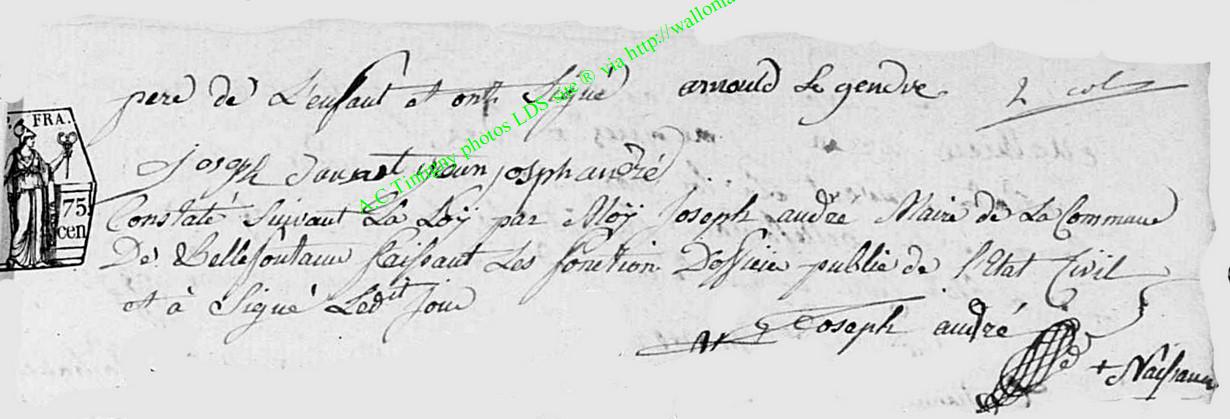 pere de L'enfant et ont Signé arnould Le gendre
joseph jean joseph andré
Constaté Suivant La Loÿ par Moÿ Joseph andre Maire de La Commune
De Bellefontaine faissant Les fonction D'officie public de l'Etat Civil
et à Signé Ledit Jour
Joseph andré
+ Naissance
FRA.
75
cen
A C Timmay photos LDS via http://wallonia